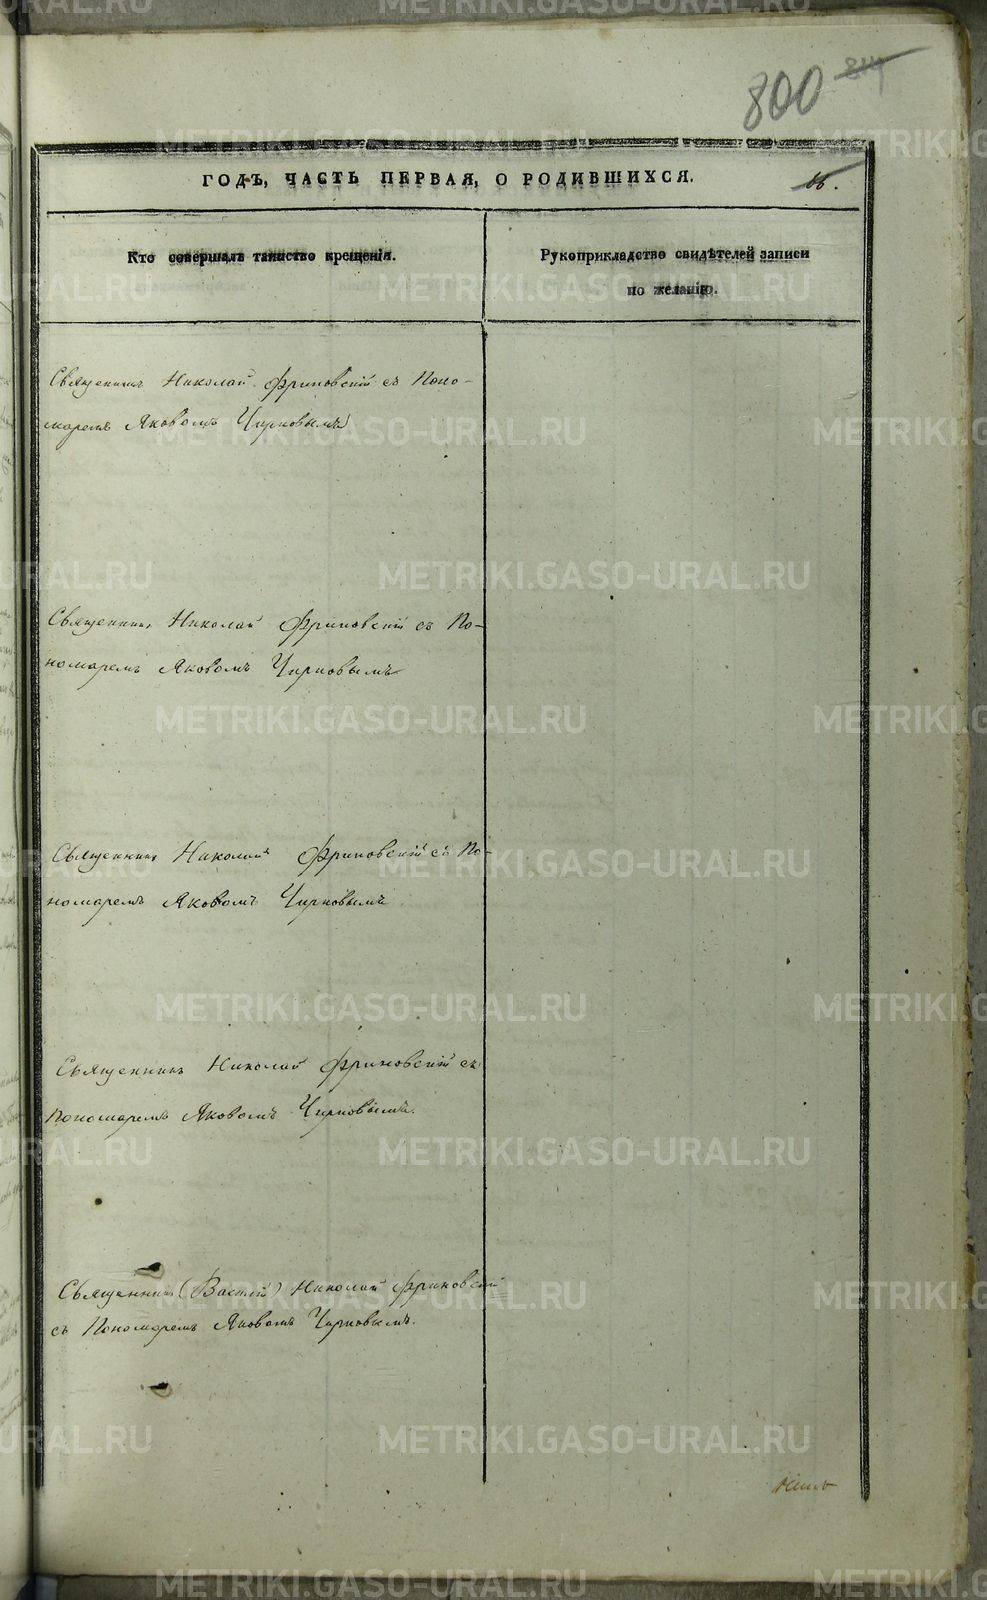 800 814
ГОДЪ, ЧАСТЬ ПЕРВАЯ, О РОДИВШИХСЯ.
Кто совершалъ таинство крещенія.
Рукоприкладство свидѣтелей записи
по желанію.
Священникъ Николай Фриновскій съ Поно-
маремъ Яковомъ Чирковымъ
Священникъ Николай Фриновскій съ По-
номаремъ Яковомъ Чирковымъ
Священникъ Николай Фриновскій съ По-
номаремъ Яковомъ Чирковымъ
Священникъ Николай Фриновскій съ
Пономаремъ Яковомъ Чирковымъ.
Священникъ (Васілій) Николай Фриновскій
съ Пономаремъ Яковомъ Чирковымъ.
METRIKI.GASO-URAL.RU